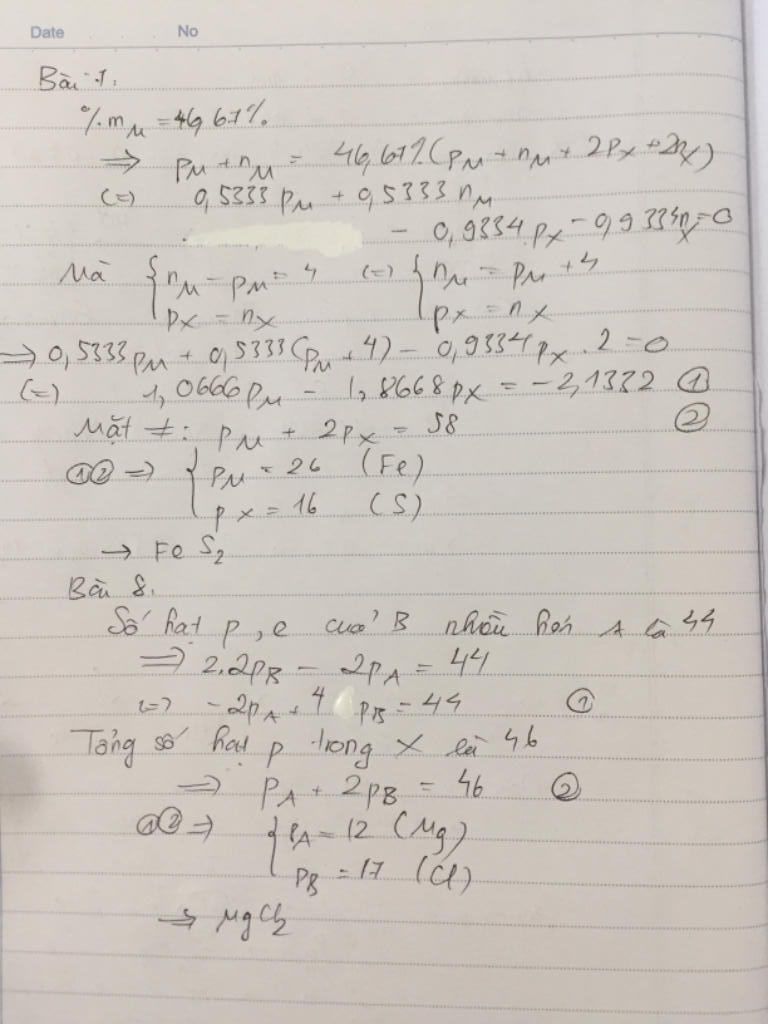 Date No
Bài 7.
%m_M = 46,67%
⇒ p_M + n_M = 46,67%(p_M + n_M + 2p_X + 2n_X)
(=) 0,5333 p_M + 0,5333 n_M
- 0,9334 p_X - 0,9334n_X = 0
Mà { n_M - p_M = 4 (=) { n_M = p_M + 4
p_X = n_X p_X = n_X
⇒ 0,5333p_M + 0,5333(p_M + 4) - 0,9334p_X . 2 = 0
(=) 1,0666p_M - 1,8668p_X = -2,1332 ①
Mặt ≠: p_M + 2p_X = 58 ②
①② ⇒ { p_M = 26 (Fe)
p_X = 16 (S)
→ FeS₂
Bài 8.
Số hạt p, e của B nhiều hơn A là 44
⇒ 2.2p_B - 2p_A = 44
(=) -2p_A + 4 p_B = 44 ①
Tổng số hạt p trong X là 46
⇒ p_A + 2p_B = 46 ②
①② ⇒ { p_A = 12 (Mg)
p_B = 17 (Cl)
⇒ MgCl₂